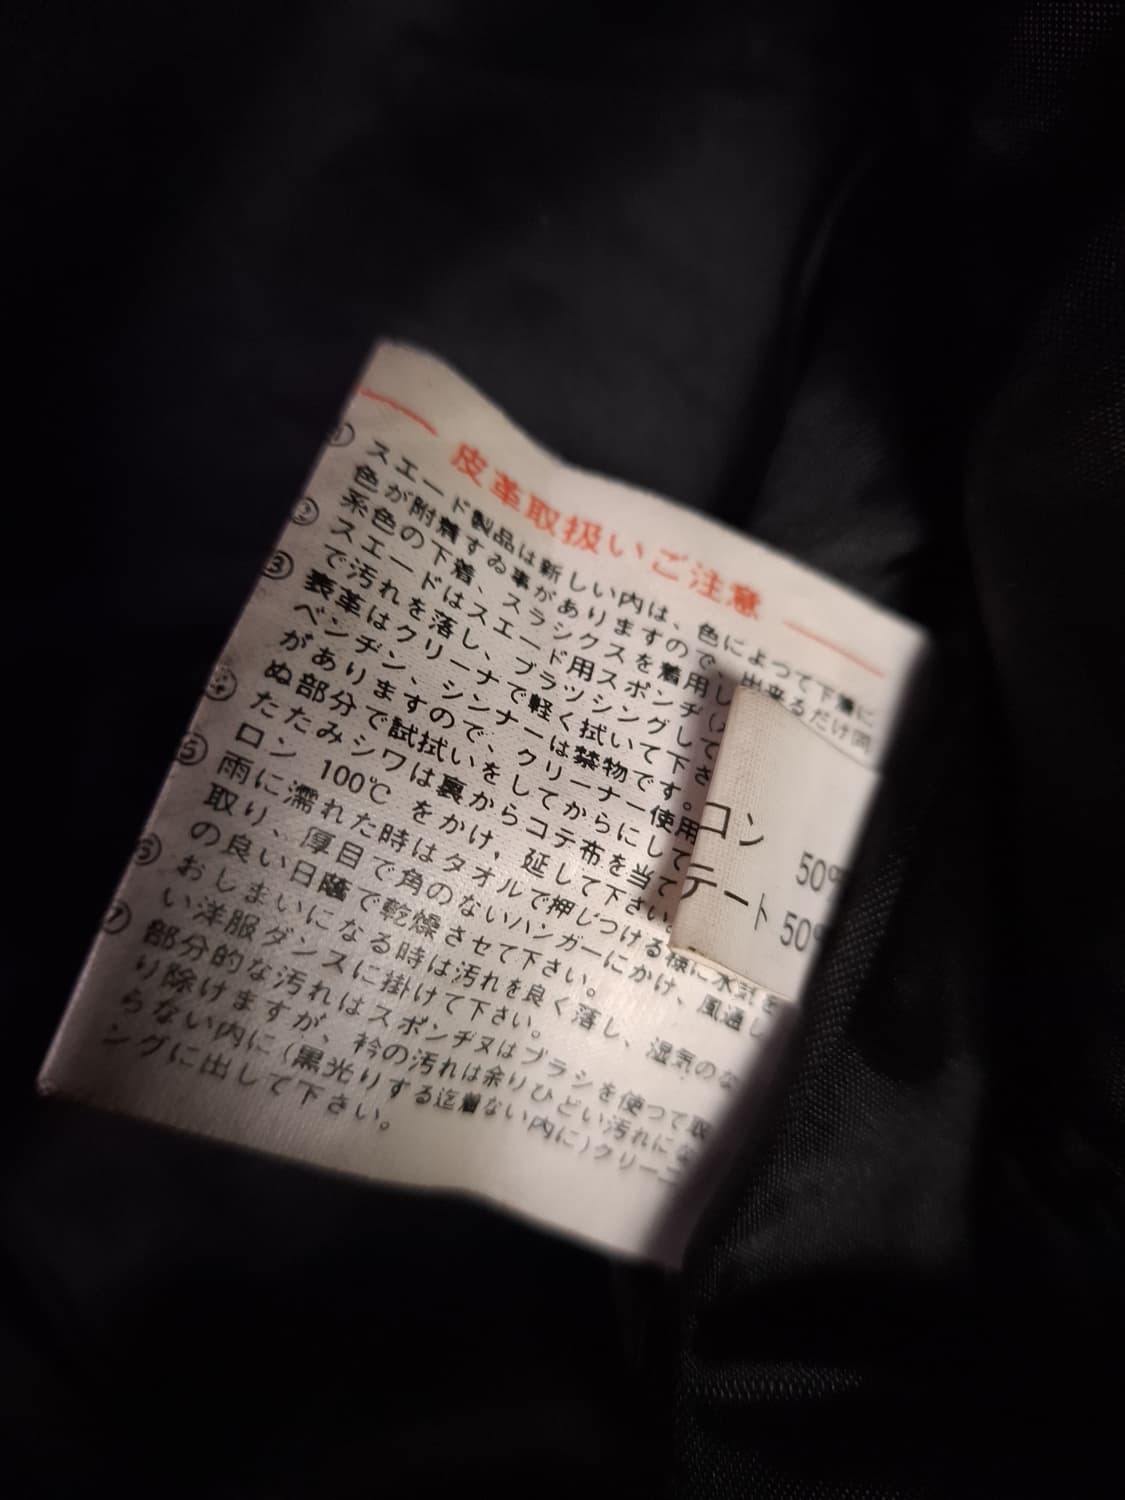 皮革取扱いご注意
① スエード製品は新しい内は、色によつて下着に
色が附着する事がありますので、出来るだけ同
系色の下着、スラックスを着用し
② スエードはスエード用スポンヂ(
で汚れを落し、ブラッシングして
③ 表革はクリーナで軽く拭いて下さ
ベンヂン、シンナーは禁物です。
がありますので、クリーナー使用
ぬ部分で試拭いをしてからにして
④ たたみシワは裏からコテ布を当て
ロン 100℃ をかけ、延して下さい。
⑤ 雨に濡れた時はタオルで押じつける様に水気を
取り、厚目で角のないハンガーにかけ、風通し
の良い日蔭で乾燥させて下さい。
⑥ おしまいになる時は汚れを良く落し、湿気のな
い洋服ダンスに掛けて下さい。
⑦ 部分的な汚れはスポンヂ又はブラシを使つて取
り除けますが、衿の汚れは余りひどい汚れにな
らない内に(黒光りする迄着ない内に)クリーニ
ングに出して下さい。
ロン 50%
テート 50%